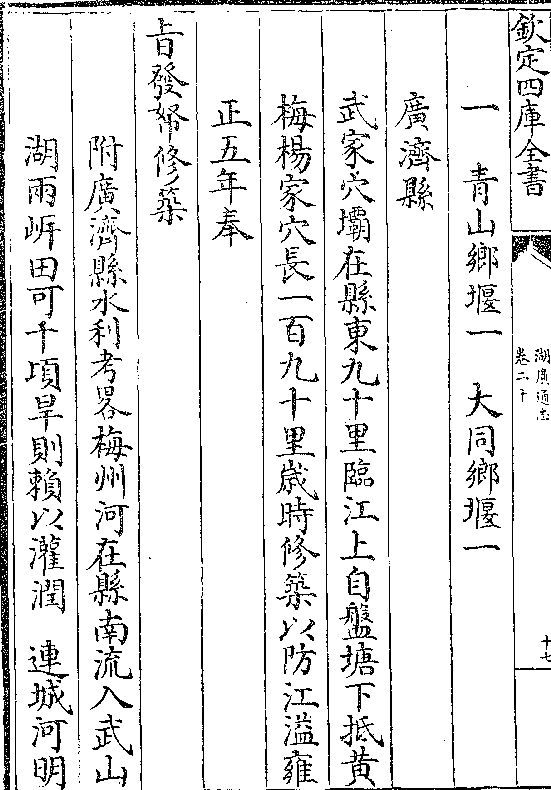 欽定四庫全書
湖廣通志
卷二十
十七
一　青山鄉堰一　大同鄉堰一
廣濟縣
武家穴壩在縣東九十里臨江上自盤塘下抵黄
梅楊家穴長一百九十里歲時修築以防江溢雍
正五年奉
旨發帑修築
附廣濟縣水利考畧梅州河在縣南流入武山
湖兩岍田可千頃旱則賴以灌潤　連城河明